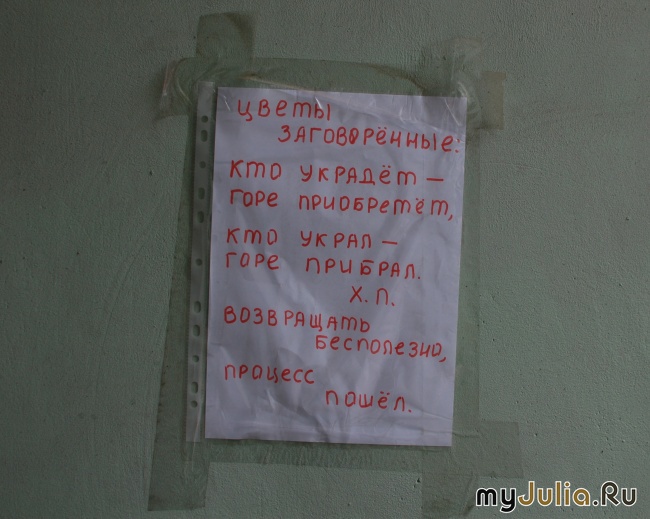 цветы
заговорённые:
кто украдёт —
горе приобретёт,
кто украл —
горе прибрал.
Х.П.
возвращать
бесполезно,
процесс
пошёл.
myJulia.Ru